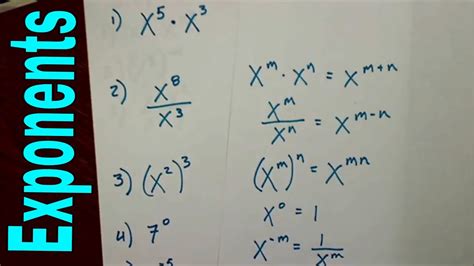 Exponents
1) x⁵ · x³
2) x⁸/x³
3) (x²)³
4) 7⁰
xᵐ · xⁿ = xᵐ⁺ⁿ
xᵐ/xⁿ = xᵐ⁻ⁿ
(xᵐ)ⁿ = xᵐⁿ
x⁰ = 1
x⁻ᵐ = 1/xᵐ